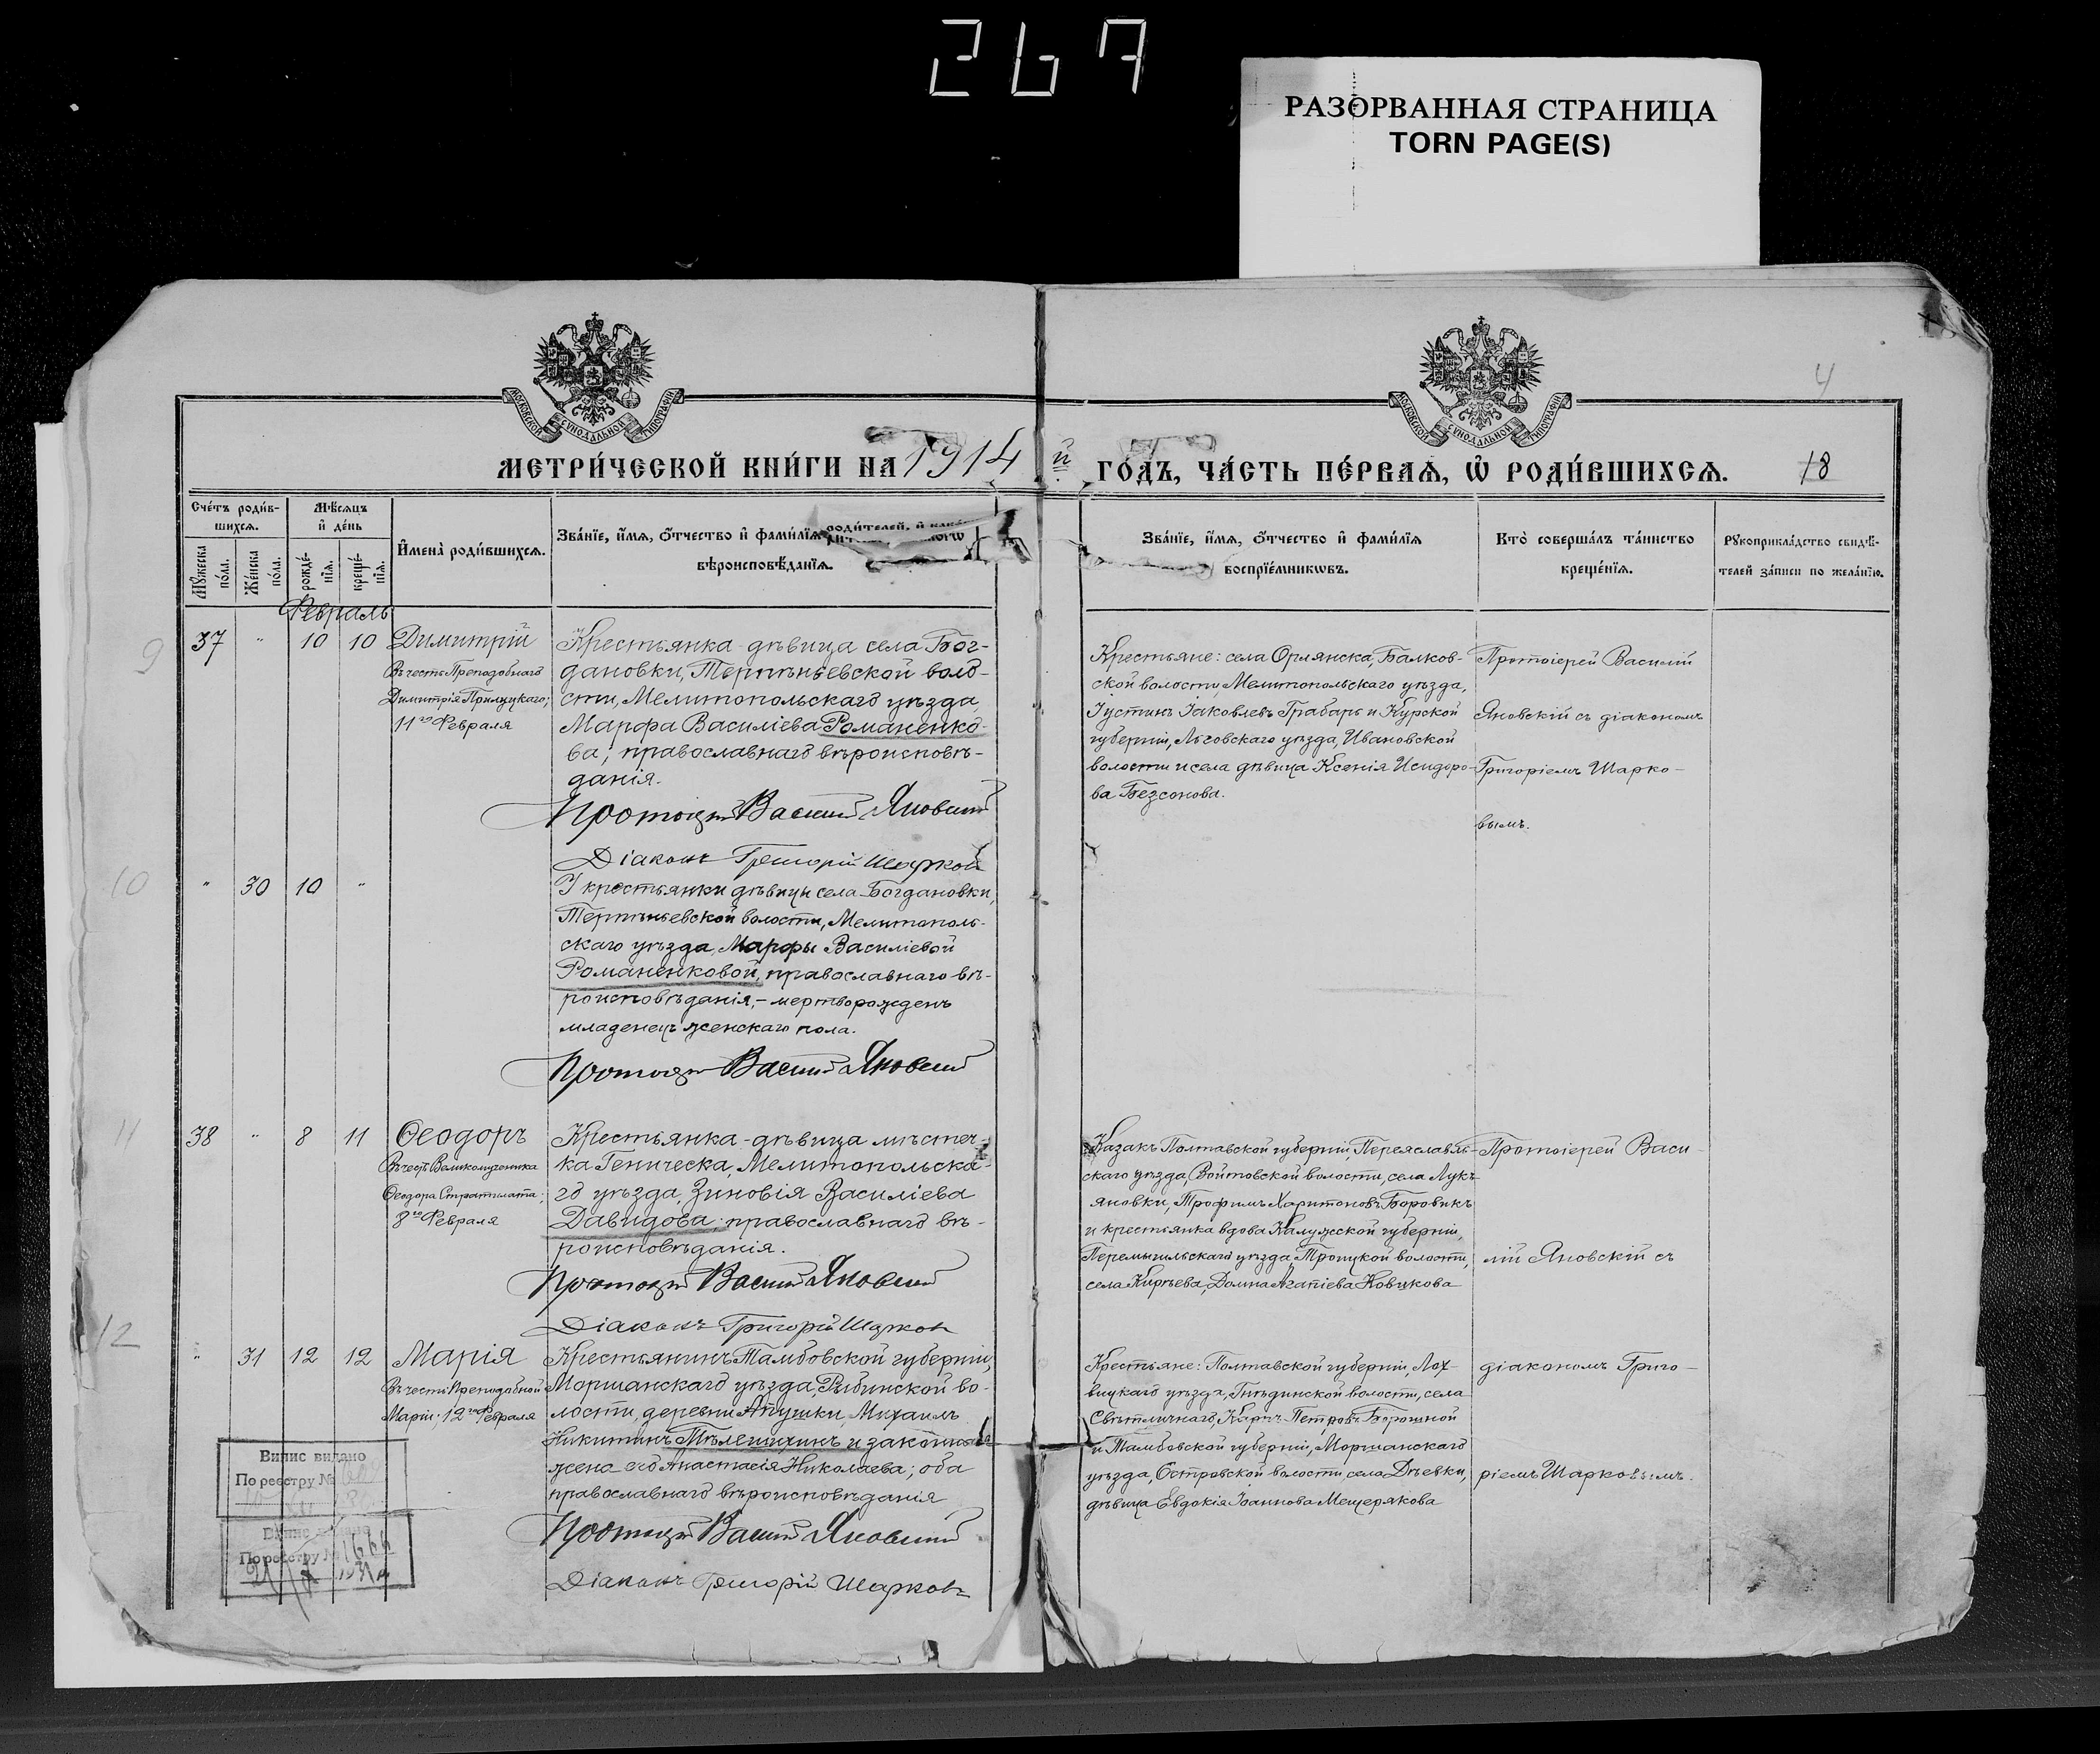 267
РАЗОРВАННАЯ СТРАНИЦА
TORN PAGE(S)
МОСКОВСКОЙ СУНОДАЛЬНОЙ ТИПОГРАФІИ
МОСКОВСКОЙ СУНОДАЛЬНОЙ ТИПОГРАФІИ
4
МЕТРИ́ЧЕСКОЙ КНИ́ГИ НА 1914 й ГО́ДЪ, ЧА́СТЬ ПЕ́РВАѦ, Ѡ РОДИ́ВШИХСѦ.
18
Сче́тъ роди́в-
шихсѧ.
Мѣ́сѧцъ
и҆ де́нь
Мꙋжеска по́ла.
Же́нска по́ла.
рожде́-нїѧ.
креще́-нїѧ.
И҆мена̀ роди́вшихсѧ.
Зва́нїе, и҆́мѧ, ѻ҆́тчество и҆ фами́лїѧ роди́телей, и҆
вѣроисповѣ́данїѧ.
Зва́нїе, и҆́мѧ, ѻ҆́тчество и҆ фами́лїѧ
воспрїе́мникѡвъ.
Кто̀ соверша́лъ та́инство
креще́нїѧ.
Рꙋкоприкла́дство свидѣ́-
телей за́писи по жела́нїю.
Февраль
9
37 " 10 10 Димитрій
Въ честь Преподобнаго
Димитрія Прилуцкаго;
11го Февраля
Крестьянка-дѣвица села Бог-
дановки, Терпѣньевской воло-
сти, Мелитопольскаго уѣзда,
Марфа Василіева Романенко-
ва; православнаго вѣроисповѣ-
данія.
Протоіерей Василій Яновский
Діаконъ Григорій Шарков
Крестьяне: села Орлянска, Балков-
ской волости, Мелитопольскаго уѣзда,
Іустинъ Іаковлевъ Грабарь и Курской
губерніи, Льговскаго уѣзда, Ивановской
волости и села дѣвица Ксенія Исидоро-
ва Безсонова.
Протоіерей Василій
Яновскій съ діакономъ
Григоріемъ Шарко-
вымъ.
10
" 30 10 "
У крестьянки дѣвицы села Богдановки,
Терпѣньевской волости, Мелитополь-
скаго уѣзда, Марфы Василіевой
Романенковой, православнаго вѣ-
роисповѣданія,- мертворожденъ
младенецъ женскаго пола.
Протоіерей Василий Яновский
11
38 " 8 11 Ѳеодоръ
Въ честь Великомученика
Ѳеодора Стратилата;
8го Февраля
Крестьянка-дѣвица мѣстеч-
ка Геническа, Мелитопольска-
го уѣзда, Зиновія Василіева
Давидова; православнаго вѣ-
роисповѣданія.
Протоіерей Василий Яновский
Діаконъ Григорій Шарков
Казакъ Полтавской губерніи, Переяслав-
скаго уѣзда, Войтовской волости, села Лукъ-
яновки, Трофимъ Харитоновъ Боровикъ
и крестьянка вдова Калужской губерніи,
Перемышльскаго уѣзда, Троицкой волости,
села Кирѣева, Домна Агапіева Новикова
Протоіерей Васи-
лій Яновскій съ
12
" 31 12 12 Марія
Въ честь Преподобной
Маріи; 12го Февраля
Крестьянинъ Тамбовской губерніи,
Моршанскаго уѣзда, Рыбинской во-
лости, деревни Апушки Михаилъ
Никитинъ Телепихинъ и законная
жена его Анастасія Николаева; оба
православнаго вѣроисповѣданія
Протоіерей Василий Яновский
Діаконъ Григорій Шарков
Крестьяне: Полтавской губерніи, Лох-
вицкаго уѣзда, Гнѣдинской волости, села
Свѣтличнаго, Карпъ Петровъ Борошной
и Тамбовской губерніи, Моршанскаго
уѣзда, Островской волости, села Дѣевки,
дѣвица Евдокія Іоаннова Мещерякова
діакономъ Григо-
ріемъ Шарковымъ.
Випис видано
По реєстру №
Випис
По реєстру №